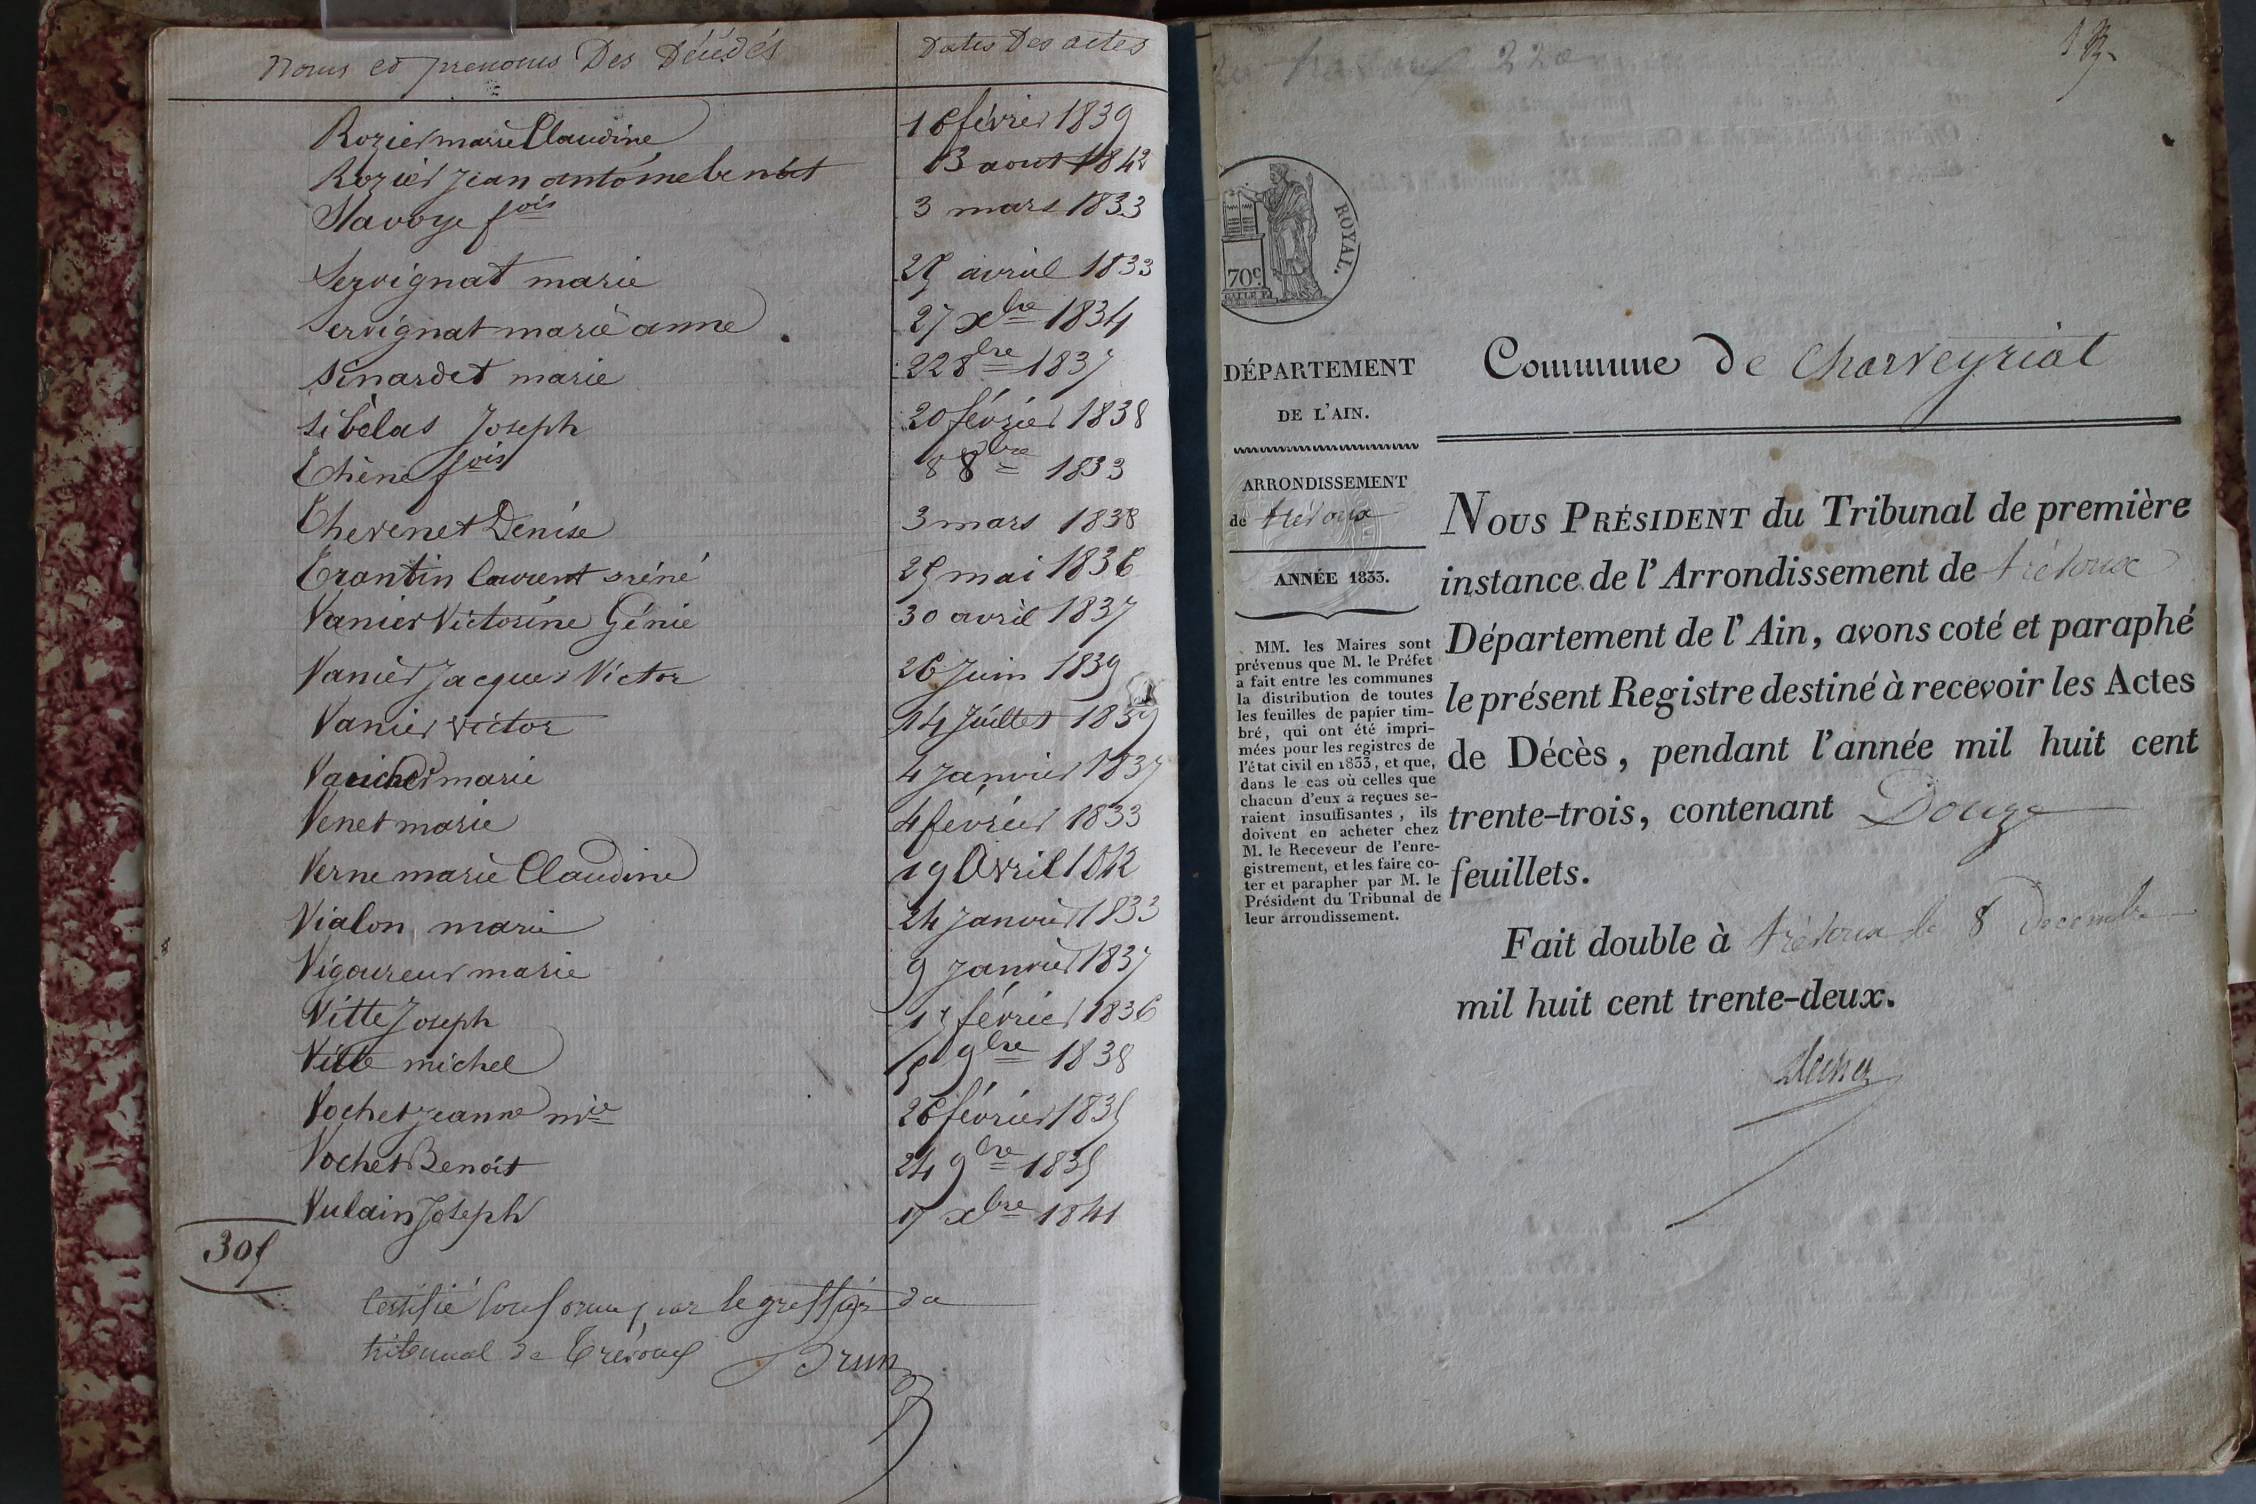 Noms et prenoms Des Décédés
Dates Des actes
Rozier marie Claudine 16 février 1839
Rozier jean antoine benoit 13 aout 1842
Savoye fois 3 mars 1833
Servignat marie 25 avril 1833
Servignat marie anne 27 xbre 1834
Sinardet marie 22 8bre 1837
sibèlas Joseph 20 février 1838
Thène fois 8 8bre 1833
Thevenet Denise 3 mars 1838
Trantin laurent réné 25 mai 1836
Vanier Victorine Génie 30 avril 1837
Vanier Jacques Victor 26 Juin 1839
Vanier victor 14 Juillet 1839
Vaucher marie 4 Janvier 1837
Venet marie 4 février 1833
Verne marie Claudine 19 Avril 1842
Vialon marie 24 Janvier 1833
Vigoureux marie 9 Janvier 1837
Vitte Joseph février 1836
Vitte michel 15 9bre 1838
Vochet jeanne mie 26 février 1835
Vochet Benoit 24 9bre 1835
Vulain Joseph 17 xbre 1841
305
Certifié Conforme par le greffier du
tribunal de Trévoux Brun
ROYAL.
70c.
DÉPARTEMENT
DE L'AIN.
ARRONDISSEMENT
de trévoux
ANNÉE 1833.
MM. les Maires sont
prévenus que M. le Préfet
a fait entre les communes
la distribution de toutes
les feuilles de papier tim-
bré, qui ont été impri-
mées pour les registres de
l'état civil en 1833, et que,
dans le cas où celles que
chacun d'eux a reçues se-
raient insuffisantes, ils
doivent en acheter chez
M. le Receveur de l'enre-
gistrement, et les faire co-
ter et parapher par M. le
Président du Tribunal de
leur arrondissement.
Commune de Charveyriat
NOUS PRÉSIDENT du Tribunal de première
instance de l'Arrondissement de trévoux
Département de l'Ain, avons coté et paraphé
le présent Registre destiné à recevoir les Actes
de Décès, pendant l'année mil huit cent
trente-trois, contenant Douze
feuillets.
Fait double à trévoux le 8 Decembre
mil huit cent trente-deux.